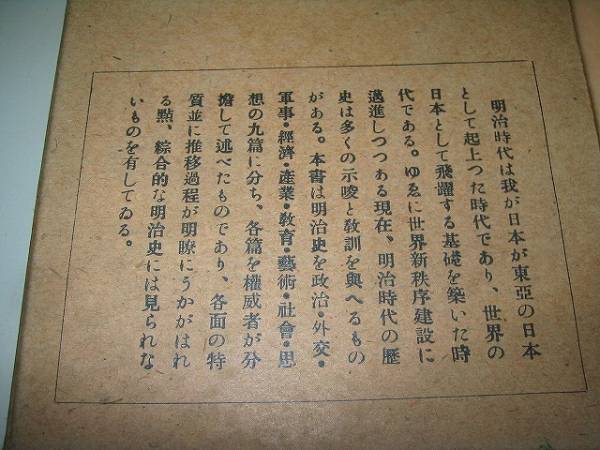 明治時代は我が日本が東亞の日本
として起上つた時代であり、世界の
日本として飛躍する基礎を築いた時
代である。ゆゑに世界新秩序建設に
邁進しつつある現在、明治時代の歴
史は多くの示唆と敎訓を與へるもの
がある。本書は明治史を政治・外交・
軍事・經濟・產業・敎育・藝術・社會・思
想の九篇に分ち、各篇を權威者が分
擔して述べたものであり、各面の特
質並に推移過程が明瞭にうかがはれ
る點、綜合的な明治史には見られな
いものを有してゐる。